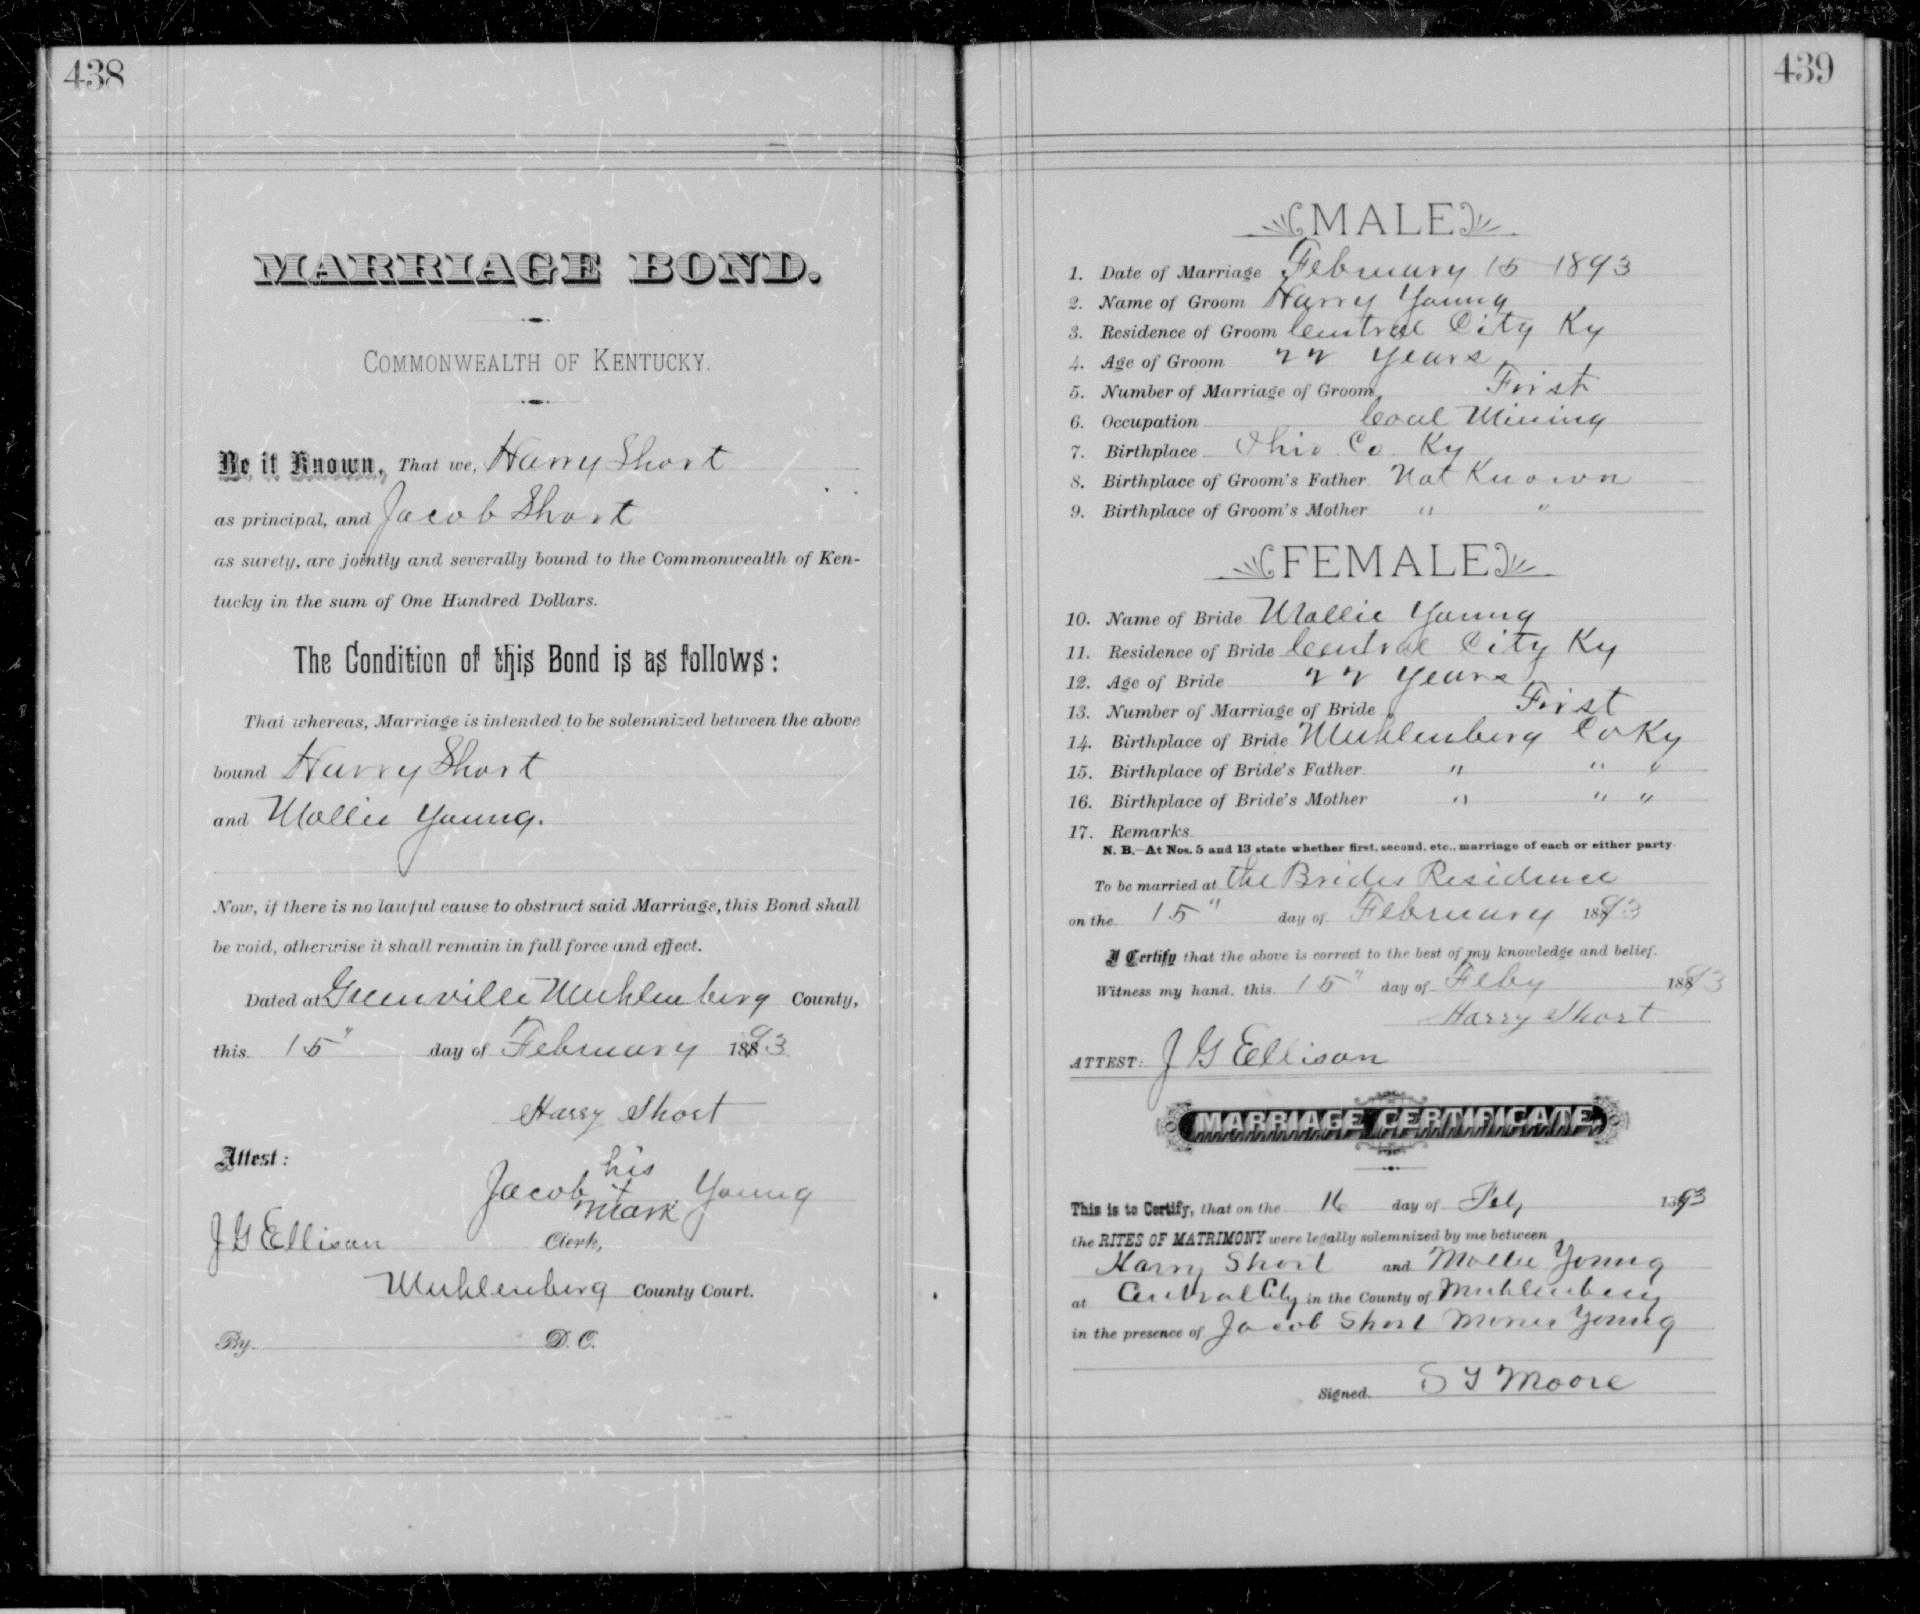 438
MARRIAGE BOND.
COMMONWEALTH OF KENTUCKY.
Be it Known, That we, Harry Short
as principal, and Jacob Short
as surety, are jointly and severally bound to the Commonwealth of Ken-
tucky in the sum of One Hundred Dollars.
The Condition of this Bond is as follows:
That whereas, Marriage is intended to be solemnized between the above
bound Harry Short
and Mollie Young.
Now, if there is no lawful cause to obstruct said Marriage, this Bond shall
be void, otherwise it shall remain in full force and effect.
Dated at Greenville Muhlenberg County,
this 15" day of February 1893
Harry Short
Attest:
his
Jacob + Young
mark
J G Ellison Clerk,
Muhlenberg County Court.
By D. C.
439
MALE
1. Date of Marriage February 15 1893
2. Name of Groom Harry Young
3. Residence of Groom Central City Ky
4. Age of Groom 22 years
5. Number of Marriage of Groom First
6. Occupation Coal Mining
7. Birthplace Ohio Co. Ky
8. Birthplace of Groom's Father Not Known
9. Birthplace of Groom's Mother " "
FEMALE
10. Name of Bride Mollie Young
11. Residence of Bride Central City Ky
12. Age of Bride 22 years
13. Number of Marriage of Bride First
14. Birthplace of Bride Muhlenberg Co Ky
15. Birthplace of Bride's Father " " "
16. Birthplace of Bride's Mother " " "
17. Remarks
N. B.—At Nos. 5 and 13 state whether first, second, etc., marriage of each or either party.
To be married at the Brides Residence
on the 15" day of February 1893
I Certify that the above is correct to the best of my knowledge and belief.
Witness my hand, this 15" day of Feby 1893
Harry Short
ATTEST: J G Ellison
MARRIAGE CERTIFICATE.
This is to Certify, that on the 16 day of Feb, 1893
the RITES OF MATRIMONY were legally solemnized by me between
Harry Short and Mollie Young
at Central City in the County of Muhlenberg
in the presence of Jacob Short Young
Signed. Moore